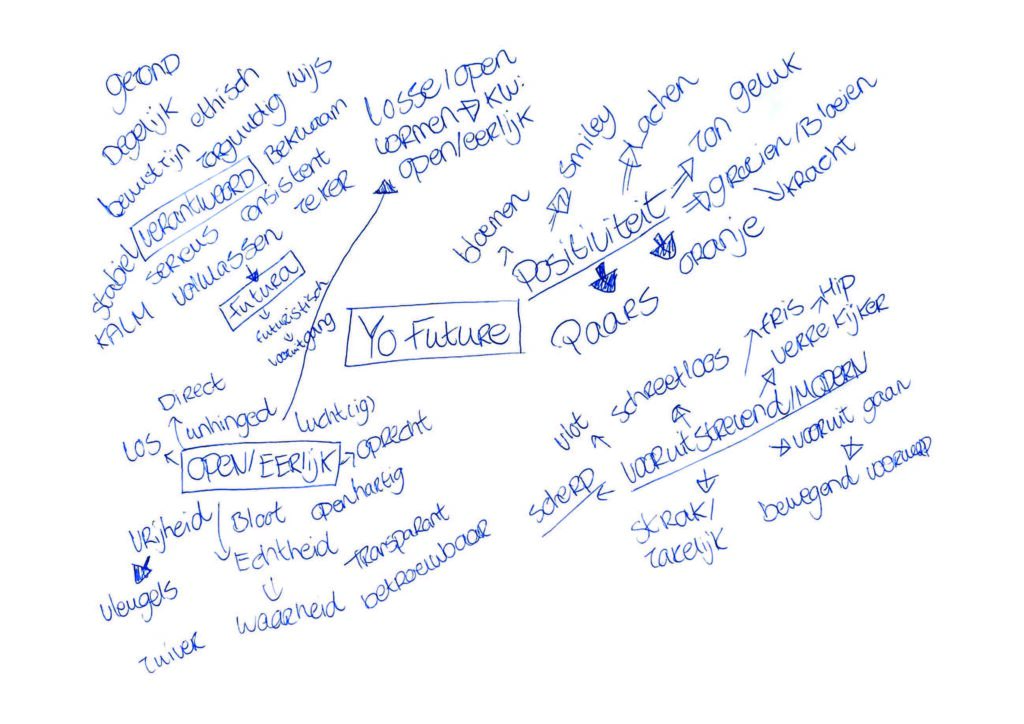 gezond
Degelijk
bewustzijn ethisch
zorgvuldig wijs
stabiel/ verantwoord Bekwaam
KALM serieus consistent
volwassen zeker
Futura
futuristisch
vooruitgang
losse/open
vormen → KW:
open/eerlijk
Yo Future
Positiviteit
bloemen
smiley
lachen
zon geluk
groeien/Bloeien
kracht
oranje
Paars
OPEN/EERLIJK
Direct
los unhinged lucht(ig)
oprecht
vrijheid Bloot openhartig
vleugels
Echtheid transparant
zuiver waarheid betrouwbaar
vooruitstrevend/MODERN
vlot schreefloos
fris Hip
verrekijker
scherp
strak/
zakelijk
vooruit gaan
bewegend voorwerp